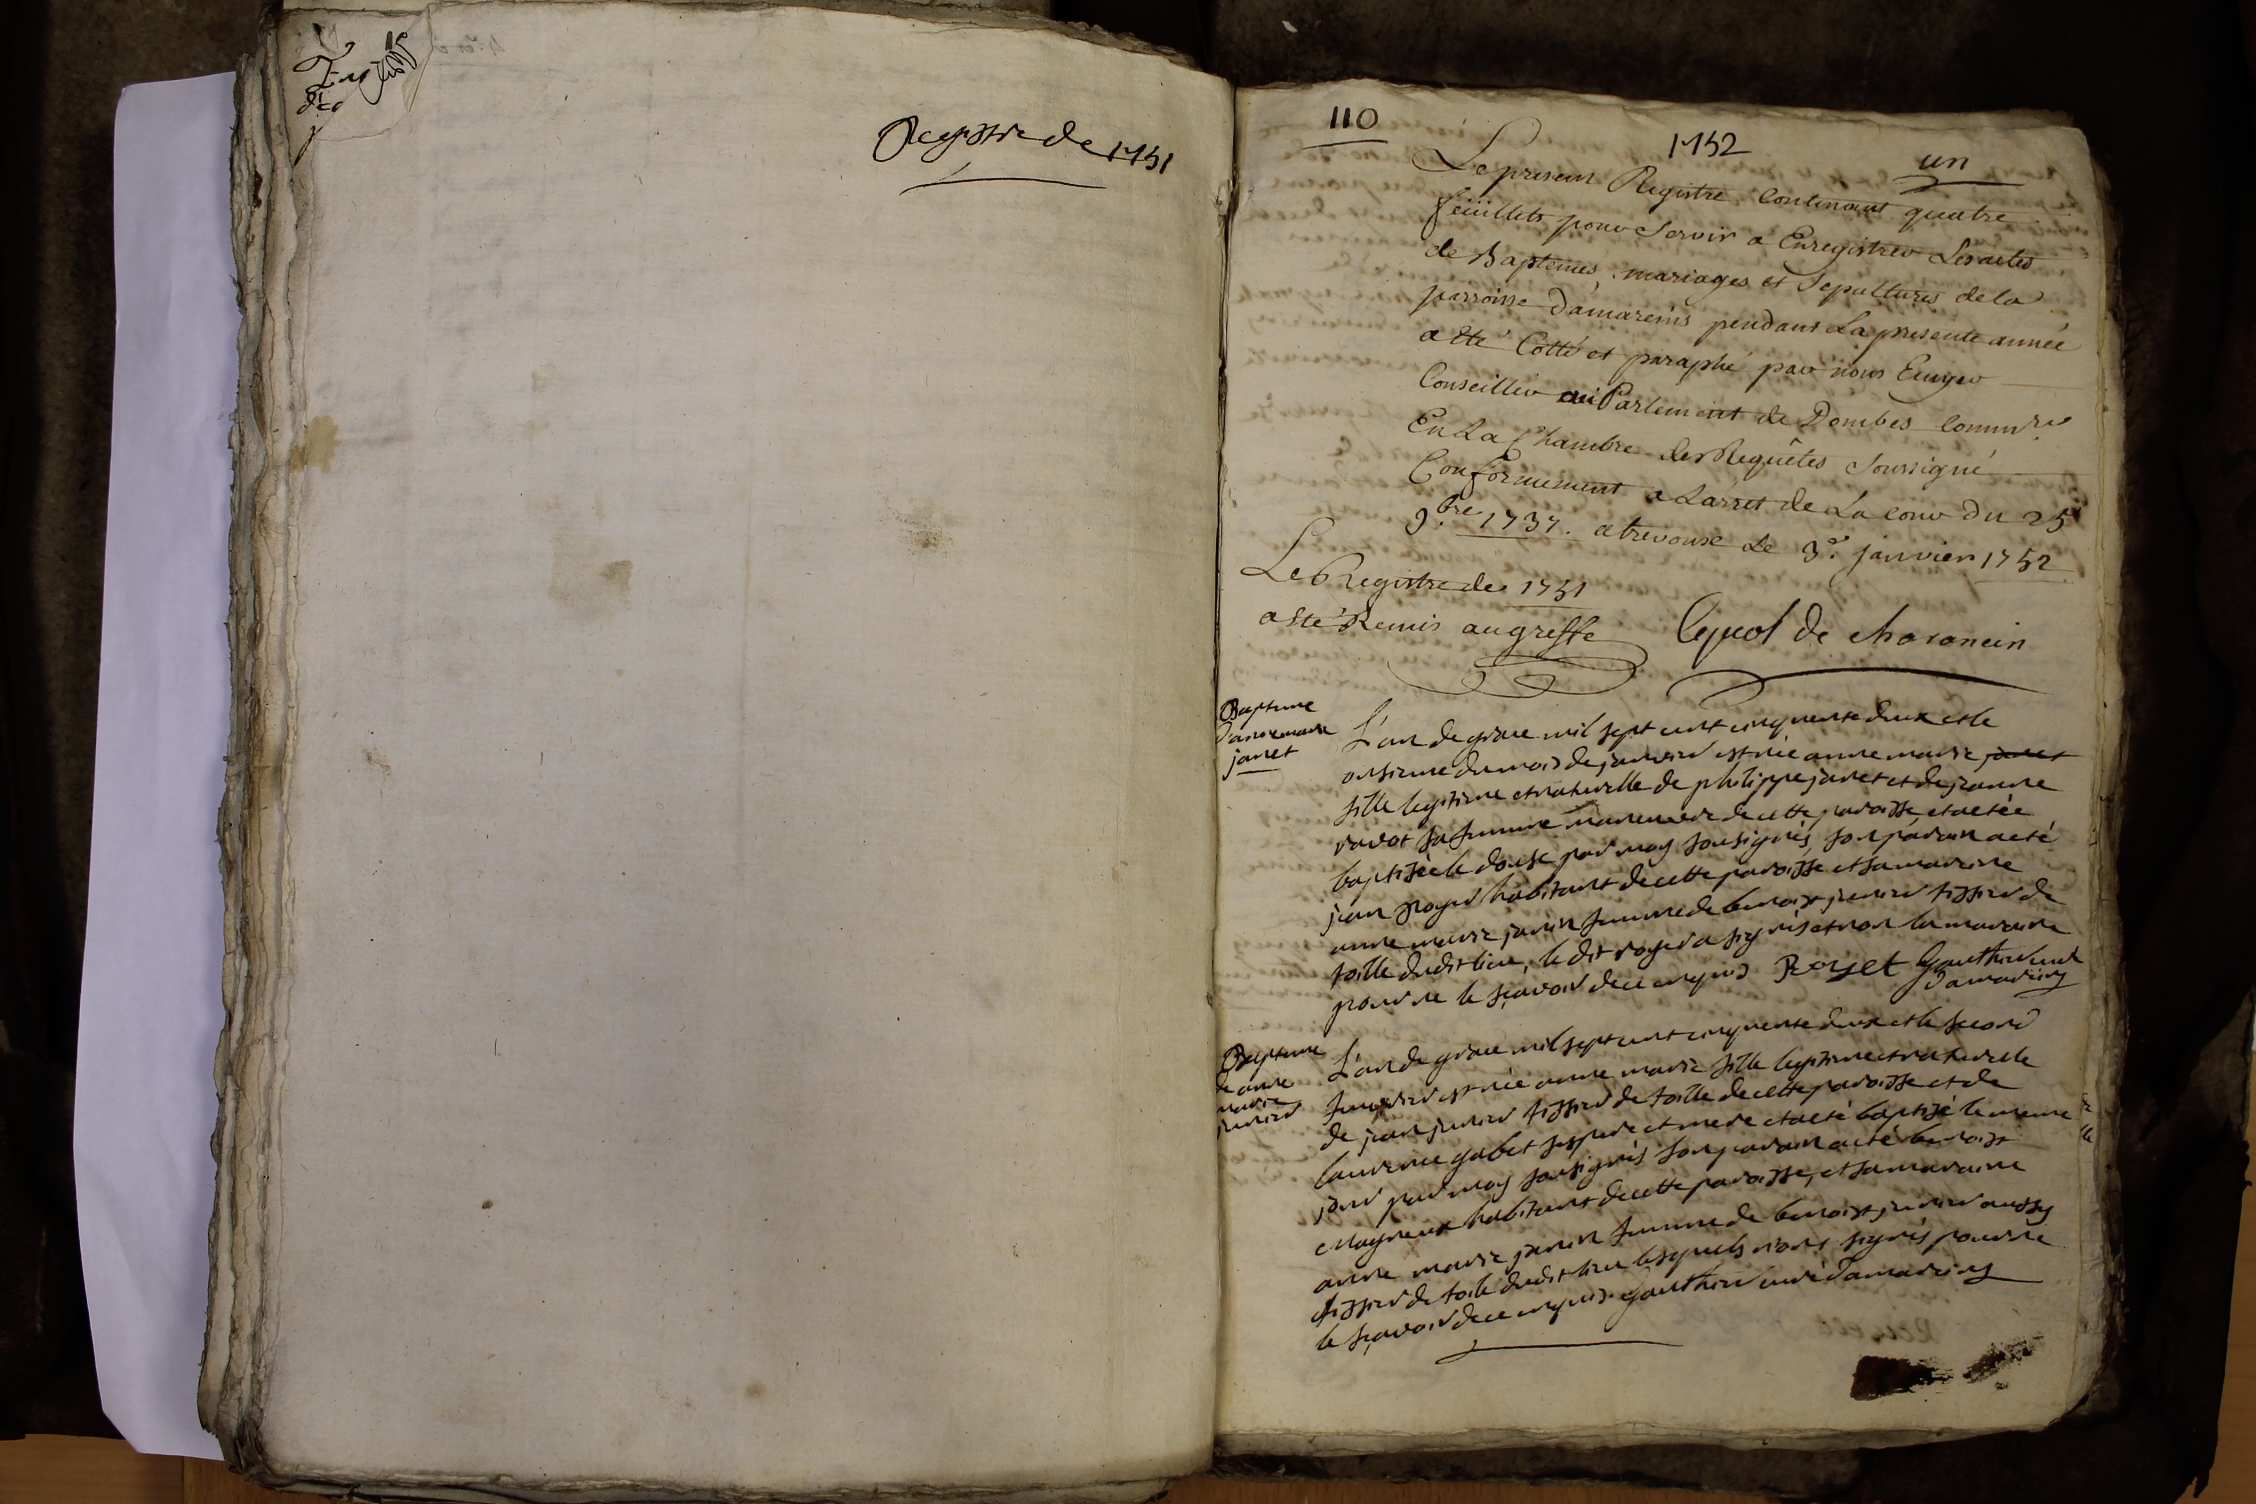 Registre de 1751
110
1752
un
Le present Registre Contenant quatre
feüillets pour Servir a Enregistrer Les actes
de Baptemes, mariages et Sepultures de la
parroisse Damareins pendant La presente année
a Eté Cotté et paraphé par nous Ecuyer
Conseiller au Parlement de Dombes Commre
En La Chambre des Requêtes Soussigné
Conformement a L'arret de La cour du 25e
9.bre 1737. a trevoux Le 3e. janvier 1752
Le Registre de 1751
a eté Remis au greffe
de
Bapteme
d'anne marie
janet
L'an de grace mil sept cent cinquante deux et le
onsieme du mois de janvier est née anne marie janet
fille legitime et naturelle de philippe janet et de jeanne
sa femme de cette paroisse et a etée
baptisée le douse par moy sousignés, son parain a eté
jean royer habitant de cette paroisse et sa maraine
anne marie janin femme de benoist junier tissier de
toille dudit lieu, le dit royer a signés et non la maraine
pour ne le sçavoir de ce enquis Royet Gauthier curé
damareins
Bapteme
de anne
marie
junier
L'an de grace mil sept cent cinquante deux et le second
fevrier est née anne marie fille legitime et naturelle
de jean junier tissier de toille de cette paroisse et de
laurence gabet ses pere et mere et a eté baptisé le meme
jour par moy sousignés son parain a eté benoist
Magneux habitant de cette paroisse, et sa maraine
anne marie janin femme de benoist junier aussy
tissier de toile dudit lieu lesquels n'ont signés pour ne
le sçavoir de ce enquis. Gauthier curé damareins